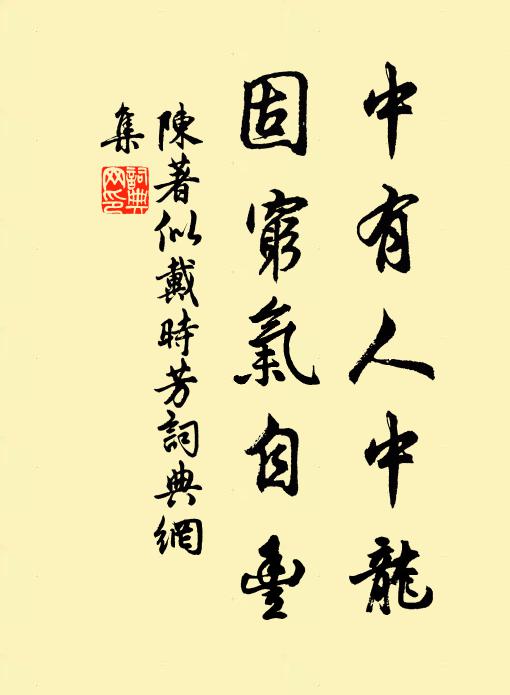 中有人中龍
固窮氣自豊
陳著似戴時芳詞典網
集
詞典網印